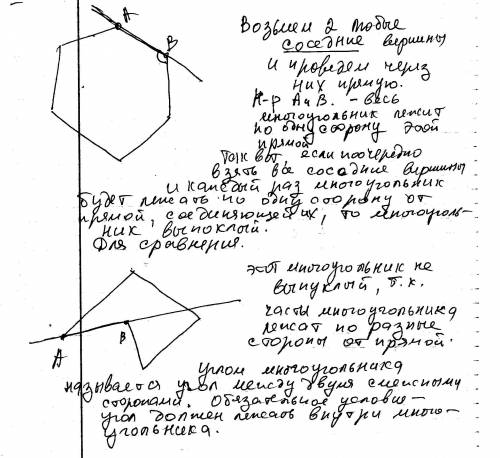 A
B
Возьмем 2 любые
соседние вершины
и проведем через
них прямую.
Н-р А и В. - весь
многоугольник лежит
по одну сторону этой
прямой
Так вот если поочередно
взять все соседние вершины
и каждый раз многоугольник
будет лежать по одну сторону от
прямой, соединяющей их, то многоуголь-
ник выпуклый.
Для сравнения.
этот многоугольник не
выпуклый, т.к.
части многоугольника
лежат по разные
стороны от прямой.
A
B
Углом многоугольника
называется угол между двумя смежными
сторонами. Обязательное условие-
угол должен лежать внутри много-
угольника.